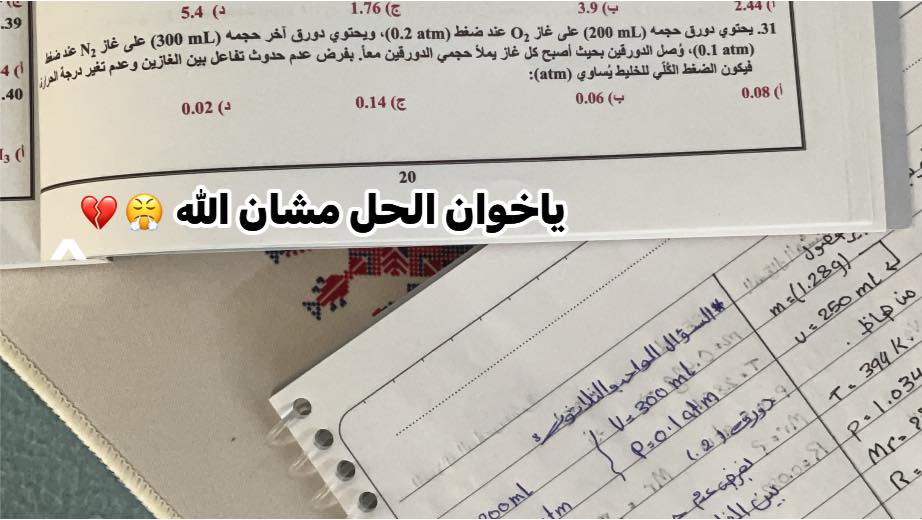 .39
أ) 2.44
ب) 3.9
ج) 1.76
د) 5.4
31. يحتوي دورق حجمه (200 mL) على غاز O₂ عند ضغط (0.2 atm)، ويحتوي دورق آخر حجمه (300 mL) على غاز N₂ عند ضغط
(0.1 atm)، وُصل الدورقين بحيث أصبح كل غاز يملأ حجمي الدورقين معاً. بفرض عدم حدوث تفاعل بين الغازين وعدم تغير درجة الحرارة
فيكون الضغط الكُلّي للخليط يُساوي (atm):
أ) 0.08
ب) 0.06
ج) 0.14
د) 0.02
أ) 4
.40
أ)
20
ياخوان الحل مشان الله 😤 💔
* السؤال الواحد والثلاثون:
V = 300 mL
P = 0.1 atm
دورق
200mL
atm
m = (1.28g)
v = 250 mL
T = 394 K
P = 1.034
Mr =
R =